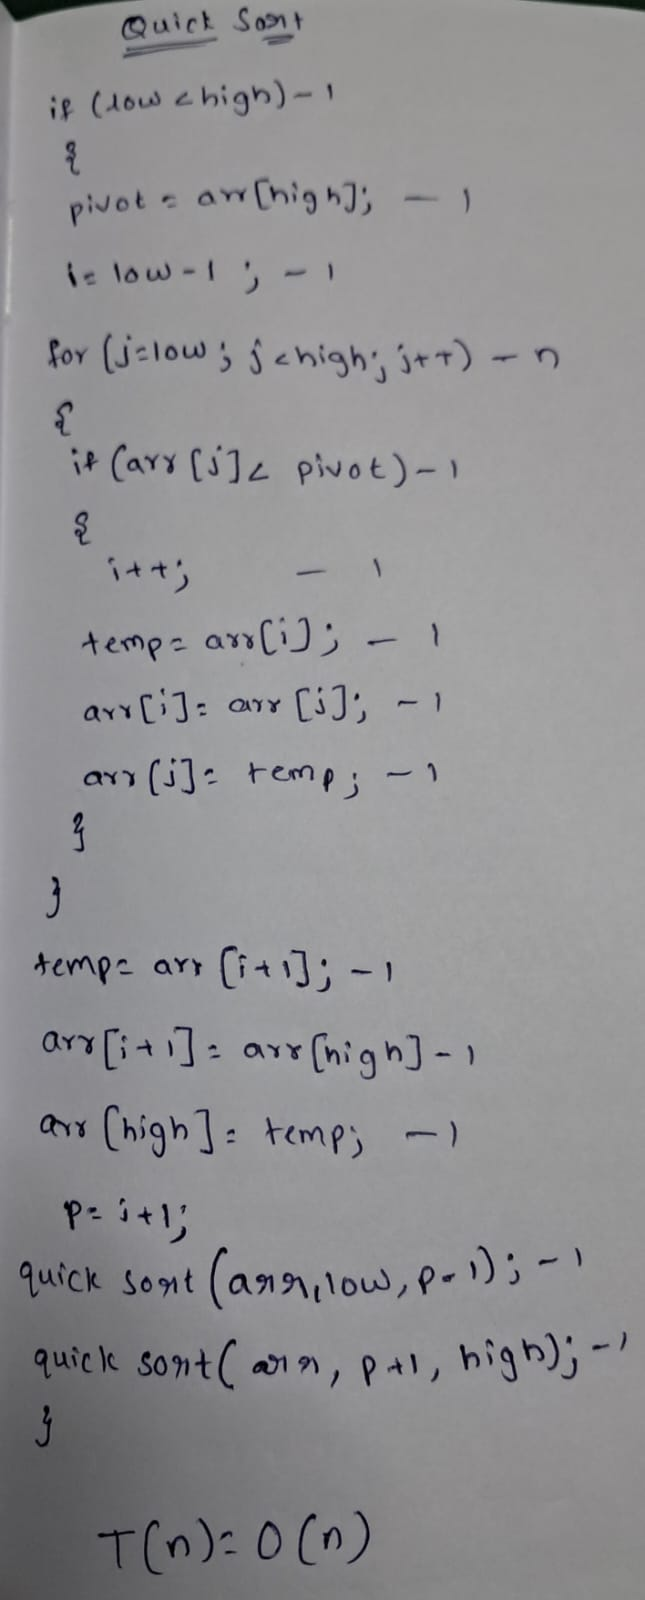 Quick Sort
if (low < high) - 1
{
pivot = arr[high]; - 1
i = low - 1 ; - 1
for (j=low ; j < high; j++) - n
{
if (arr [j] < pivot) - 1
{
i++; - 1
temp = arr[i]; - 1
arr[i] = arr [j]; - 1
arr[j] = temp; - 1
}
}
temp = arr [i+1]; - 1
arr[i+1] = arr[high] - 1
arr [high] = temp; - 1
p = i+1;
quick sort (arr, low, p-1); - 1
quick sort( arr, p+1, high); - 1
}
T(n) = O(n)